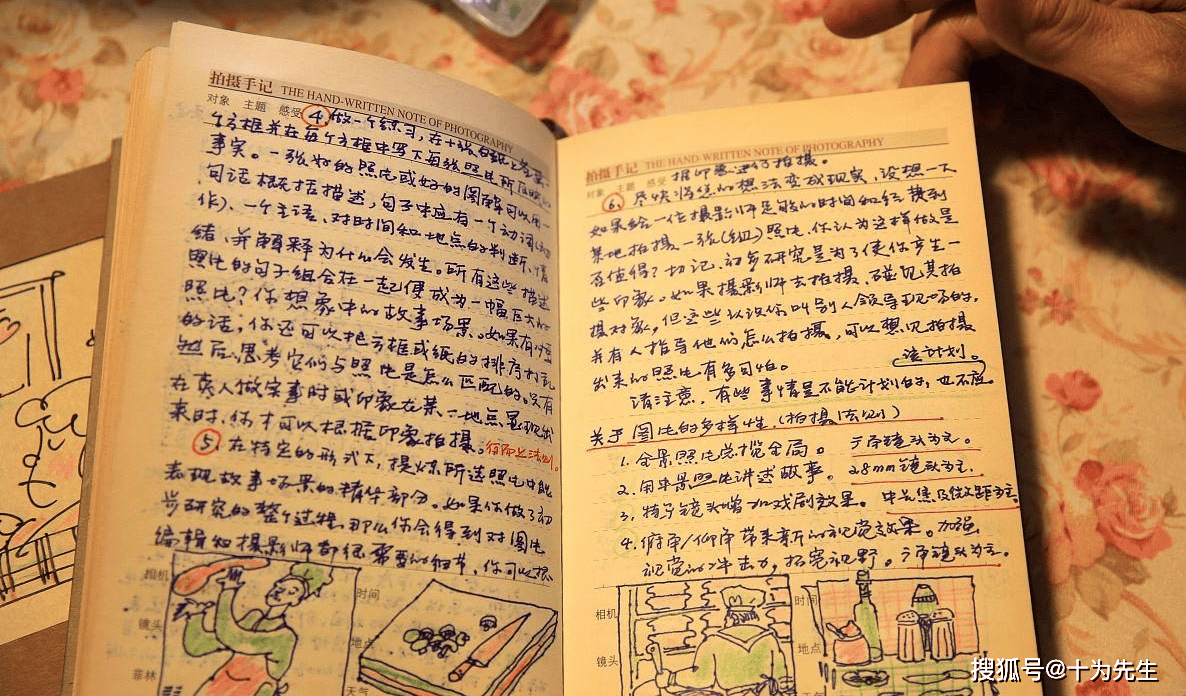 拍摄手记 THE HAND-WRITTEN NOTE OF PHOTOGRAPHY
对象 主题 感受 ④做一个练习,在十张白纸上各画一
个方框并在每个方框中写下每张照片所反映的
事实。一张好的照片或好的图解可以用一
句话概括描述,句子中应有一个动词(动
作)、一个主语、对时间和地点的判断、情
绪、并解释为什么会发生。所有这些描述
照片的句子组合在一起便成为一幅巨大的
照片?你想象中的故事场景。如果有必要
的话,你还可以把方框或纸的排序打乱
然后,思考它们与照片是怎么匹配的。只有
在真人做实事时或印象在某一地点显现出
来时,你才可以根据印象拍摄。
⑤ 在特定的形式下,提炼所选照片中能
表现故事场景的精华部分。如果你做了初
步研究的整个过程,那么你会得到对图片
编辑和摄影师都很需要的细节,你可以根
相机
时间
镜头
地点
菲林
天气
拍摄手记 THE HAND-WRITTEN NOTE OF PHOTOGRAPHY
对象 主题 感受 据印象进行拍摄。
⑥ 尽快将您的想法变成现实,设想一下
如果给一位摄影师足够的时间和经费到
某地拍摄一张(组)照片,你认为这样做是
否值得?切记,初步研究是为了使你产生一
些印象。如果摄影师去拍摄、碰见其拍
摄对象,但这些认识你叫别人领导现场的,
并有人指导他们怎么拍摄,可以想见拍摄
出来的照片有多可怕。
该计划。
请注意,有些事情是不能计划的,也不应
关于图片的多样性(拍摄法则)
1. 全景照片总揽全局。 广角镜头为主。
2. 用中景照片讲述故事。 28mm镜头为主.
3. 特写镜头增加戏剧效果。 中长焦及微距为主.
4. 俯角/仰角带来新的视觉效果。加强
视觉的冲击力,拓宽视野。广角镜头为主。
相机
时间
镜头
地点
天气
搜狐号@十为先生